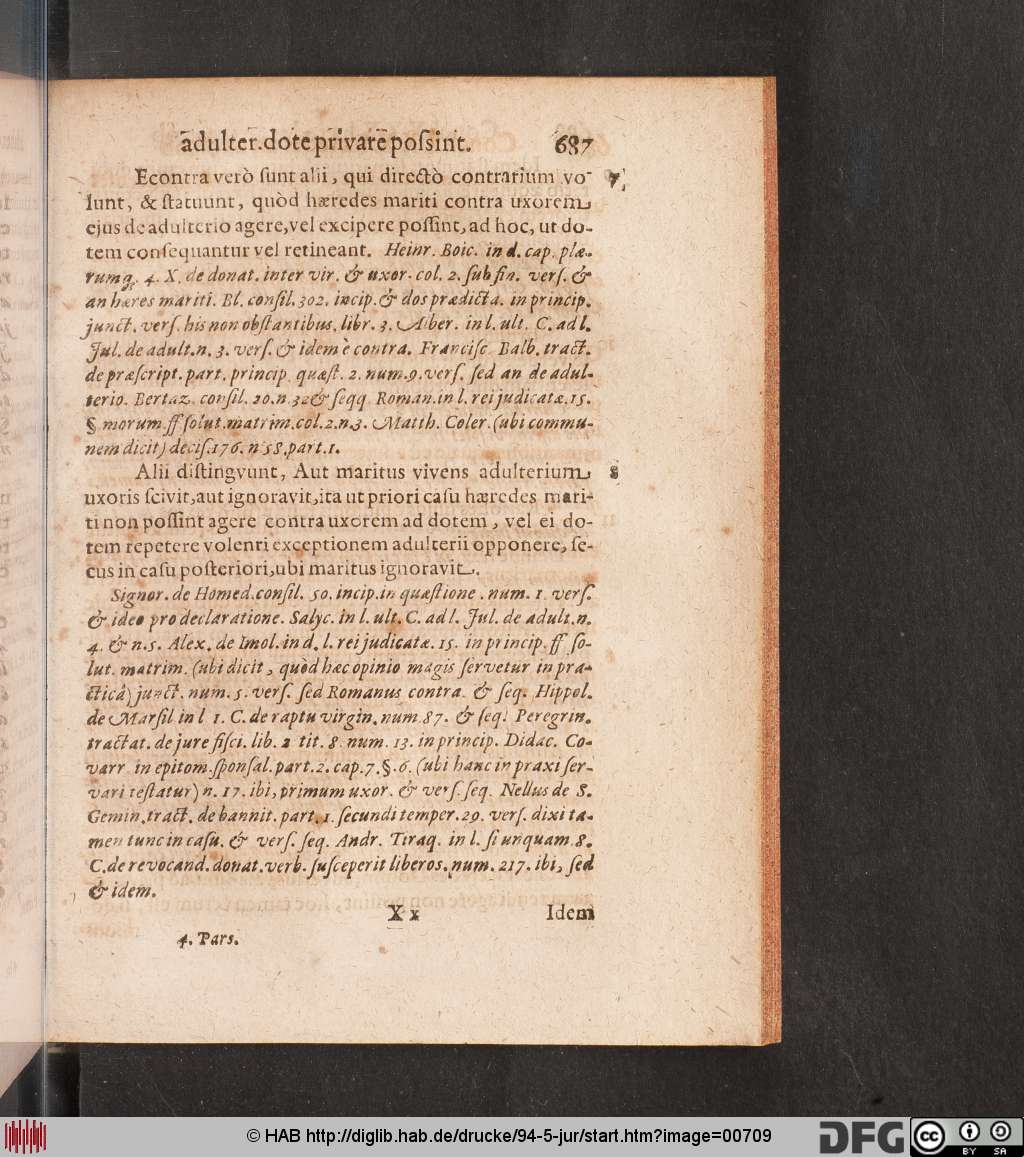 adulter. dote privare possint. 687
Econtra verò sunt alii, qui directò contrarium vo- 7
lunt, & statuunt, quòd hæredes mariti contra uxorem
ejus de adulterio agere, vel excipere possint, ad hoc, ut do-
tem consequantur vel retineant. Heinr. Boic. in d. cap. plæ-
rumq; 4. X. de donat. inter vir. & uxor. col. 2. sub fin. vers. &
an hæres mariti. Bl. consil. 302. incip. & dos prædicta. in princip.
junct. vers. his non obstantibus. libr. 3. Alber. in l. ult. C. ad l.
Jul. de adult. n. 3. vers. & idem è contra. Francisc. Balb. tract.
de præscript. part. princip. quæst. 2. num. 9. vers. sed an de adul-
terio. Bertaz. consil. 20. n. 32 & seqq. Roman. in l. rei judicatæ. 15.
§. morum. ff. solut. matrim. col. 2. n. 3. Matth. Coler. (ubi commu-
nem dicit) decis. 176. n. 58. part. 1.
Alii distingvunt, Aut maritus vivens adulterium 8
uxoris scivit, aut ignoravit, ita ut priori casu hæredes mari-
ti non possint agere contra uxorem ad dotem, vel ei do-
tem repetere volenti exceptionem adulterii opponere, se-
cus in casu posteriori, ubi maritus ignoravit.
Signor. de Homed. consil. 50. incip. in quæstione. num. 1. vers.
& ideo pro declaratione. Salyc. in l. ult. C. ad l. Jul. de adult. n.
4. & n. 5. Alex. de Imol. in d. l. rei judicatæ. 15. in princip. ff. so-
lut. matrim. (ubi dicit, quòd hæc opinio magis servetur in pra-
cticâ) junct. num. 5. vers. sed Romanus contra. & seq. Hippol.
de Marsil. in l. 1. C. de raptu virgin. num. 87. & seq. Peregrin.
tractat. de jure fisci. lib. 2. tit. 8. num. 13. in princip. Didac. Co-
varr. in epitom. sponsal. part. 2. cap. 7. §. 6. (ubi hanc in praxi ser-
vari testatur) n. 17. ibi, primum uxor. & vers. seq. Nellus de S.
Gemin. tract. de bannit. part. 1. secundi temper. 29. vers. dixi ta-
men tunc in casu. & vers. seq. Andr. Tiraq. in l. si unquam. 8.
C. de revocand. donat. verb. susceperit liberos. num. 217. ibi, sed
& idem.
X x Idem
4. Pars.
© HAB http://diglib.hab.de/drucke/94-5-jur/start.htm?image=00709
DFG
cc BY SA